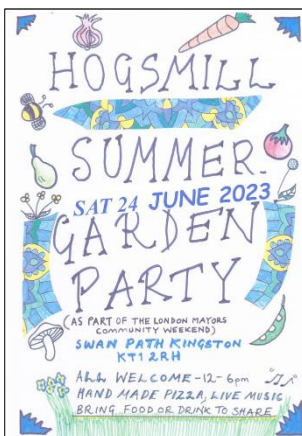 HOGSMILL
SUMMER
SAT 24 JUNE 2023
GARDEN
PARTY
(AS PART OF THE LONDON MAYORS
COMMUNITY WEEKEND)
SWAN PATH KINGSTON
KT1 2RH
ALL WELCOME - 12 - 6pm
HAND MADE PIZZA, LIVE MUSIC
BRING FOOD OR DRINK TO SHARE